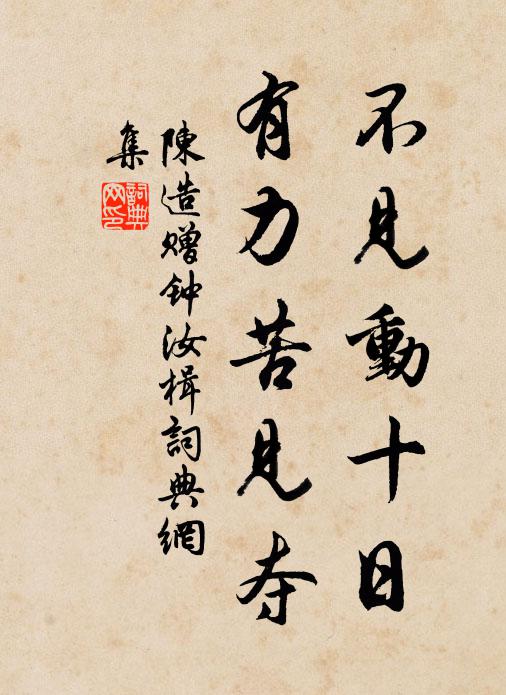 不見動十日
有力苦見夺
陳造赠钟汝楫詞典網
集
詞典網印